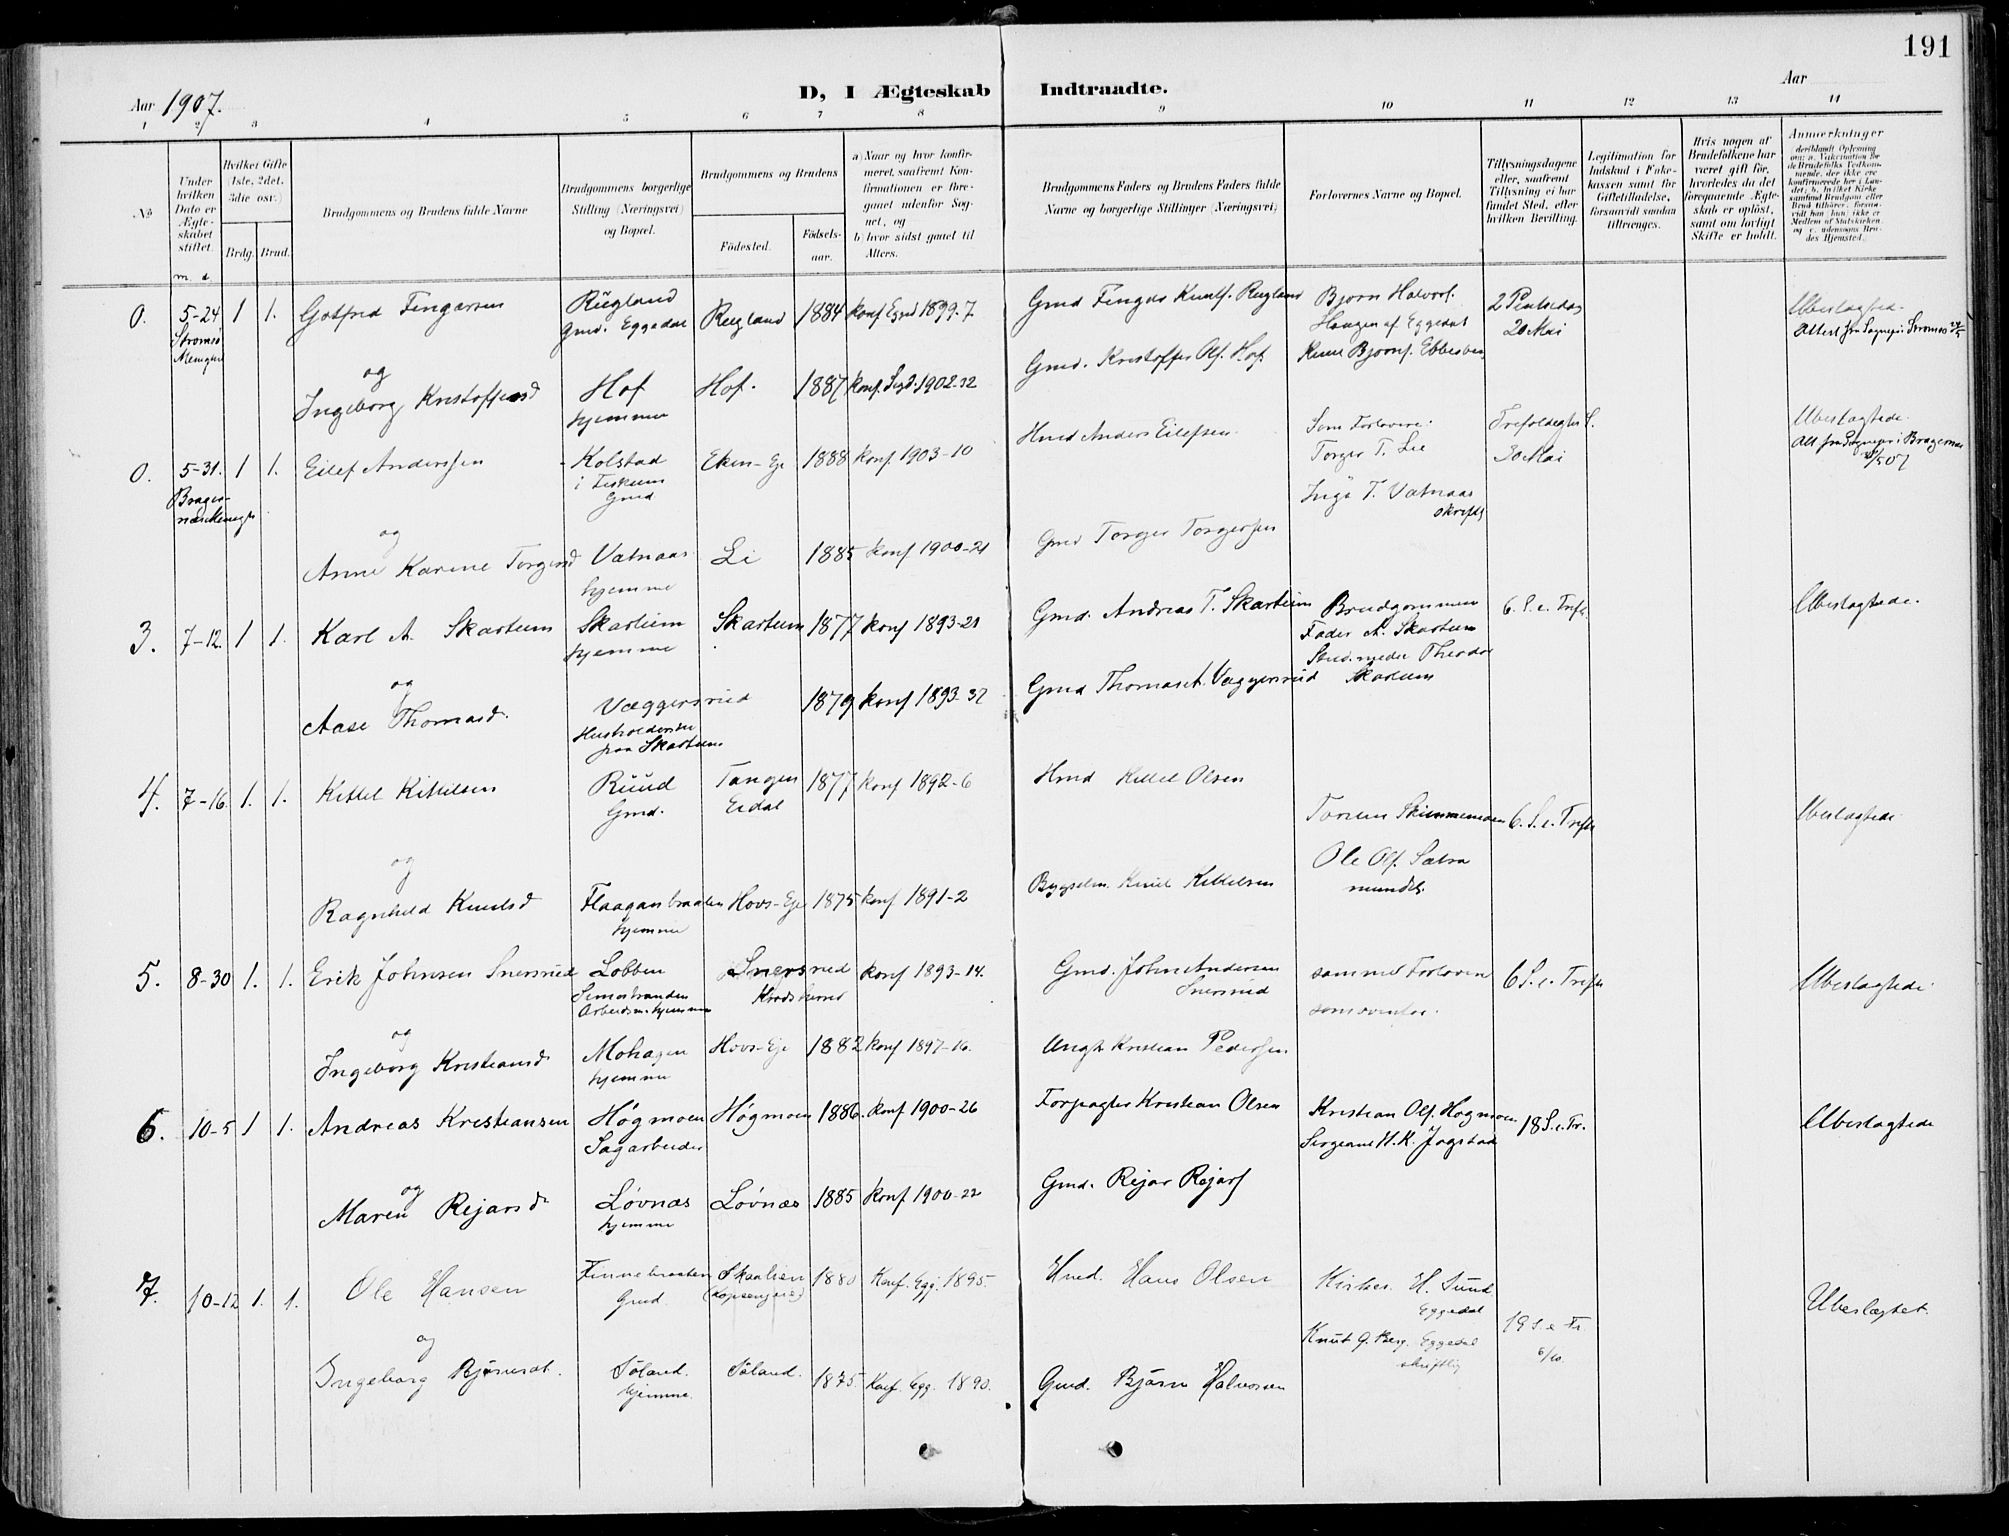 191
Aar 1907.
D, I Ægteskab Indtraadte.
Aar
1 2 3 4 5 6 7 8 9 10 11 12 13 14
No
Under hvilken Dato er Ægteskabet stiftet.
m. d.
Hvilket Gifte (1ste, 2det, 3die osv.)
Brdg. Brud.
Brudgommens og Brudens fulde Navne
Brudgommens borgerlige Stilling (Næringsvei) og Bopæl.
Brudgommens og Brudens
Födested.
Födselsaar.
a) Naar og hvor konfirmeret, saafremt Konfirmationen er foregaaet udenfor Sognet, og b) hvor sidst gaaet til Alters.
Brudgommens Faders og Brudens Faders fulde Navne og borgerlige Stillinger (Næringsvei)
Forlovernes Navne og Bopæl.
Tillysningsdagene eller, saafremt Tillysning ei har fundet Sted, efter hvilken Bevilling.
Legitimation for Indskud i Enkekassen samt for Giftetilladelse, forsaavidt saadan tiltrænges.
Hvis nogen af Brudefolkene har været gift før, hvorledes da det foregaaende Ægteskab er opløst, samt om lovligt Skifte er holdt.
Anmerkninger
0. 5-24 1 1. Gotfred Fingarsen Rugland Rugland 1884 konf Eggd 1899-7 Gmd Fingar Knutf. Rugland Bjørn Halvorf. 2 Pintsedag Ubeslagtede
Strømsø Menighed Gmd. Eggedal Haugen af Eggedal 20 Mai Attest fra Sognepr. i Strømsø 24/5
og Gmd. Kristoffer Olf. Hof. Knut Bjørnf.
Ingeborg Kristoffersd Hof Hof. 1887 konf. Sigd. 1902-12
hjemme
0. 5-31. 1 1. Eilef Anderssen Kolstad Eken-Eje 1888 konf. 1903-10 Hmd Anders Eilefsen Som Forlovere: Trefoldighds S. Ubeslagtede.
Bragernæs Menigh i Fiskum Torger T. Lie 30 Mai Att. fra Sognepr. i Bragernæs
Gmd Inga T. Vatnaas
og skriftlig
Anne Karine Torgersd Vatnaas Li 1885 konf 1900-21 Gmd Torger Torgersen
hjemme
3. 7-12. 1 1. Karl A. Skartum Skartum Skartum 1877 konf 1893-21 Gmd. Andreas T. Skartum Brudgommens 6. S. e. Trefh. Ubeslagtede.
hjemme Fader A. Skartum
og Theodor
Aase Thomasd. Væggersrud 1879 konf 1893-32 Gmd Thomas A. Væggersrud Skartum
Husholderske
paa Skartum
4. 7-16. 1. 1. Kittel Kittilsen Ruud Tangen 1877 konf 1892-6 Hmd Kittel Olsen Ubeslagtede
Gmd. Eidal 6. S. e. Trefh
og Ole Olf. Sætra
Ragnhild Knutsd Flaaganbraaten Hovs-Eje 1875 konf 1891-2 Bygselm. Knut Kittelsen mundtl.
hjemme
5. 8-30 1. 1. Erik Johnsen Snersrud Lobben Snersrud konf 1893-14. Gmd. John Andersen samme Forlovere 6 S. e. Trefh Ubeslagtede
Simostranden Krødsherred Snersrud som ovenfor.
Arbeidsm. hjemme
og
Ingeborg Kristiansd Mohagen Hovs-Eje 1882 konf 1897-16. Ungk. Kristian Pedersen
hjemme
6. 10-5 1 1. Andreas Kristiansen Høgmoen Høgmoen 1886. konf 1900-26 Forpagter Kristian Olsen Kristian Olf. Høgmoen 18 S. e. Tr. Ubeslagtede
Sagarbeider Sergeant H. K. Jogstad
og
Maren Rejarsd Løvnæs Løvnæs 1885 konf 1900-22 Gmd. Rejar Rejarf
hjemme
7. 10-12 1. 1. Ole Hansen Finnebraaten Skaalien 1880 Konf. Egg. 1895. Hmd. Hans Olsen Kirkes. H. Sund Ubeslægtet.
Gmd. Eggedal
og Knut G. Berg. Eggedal 19 S. e. Tr.
skriftlig 6/10.
Ingeborg Bjørnsdt. Søland. Søland. 1875. Konf. Egg. 1890. Gmd. Bjørn Halvorsen
hjemme.